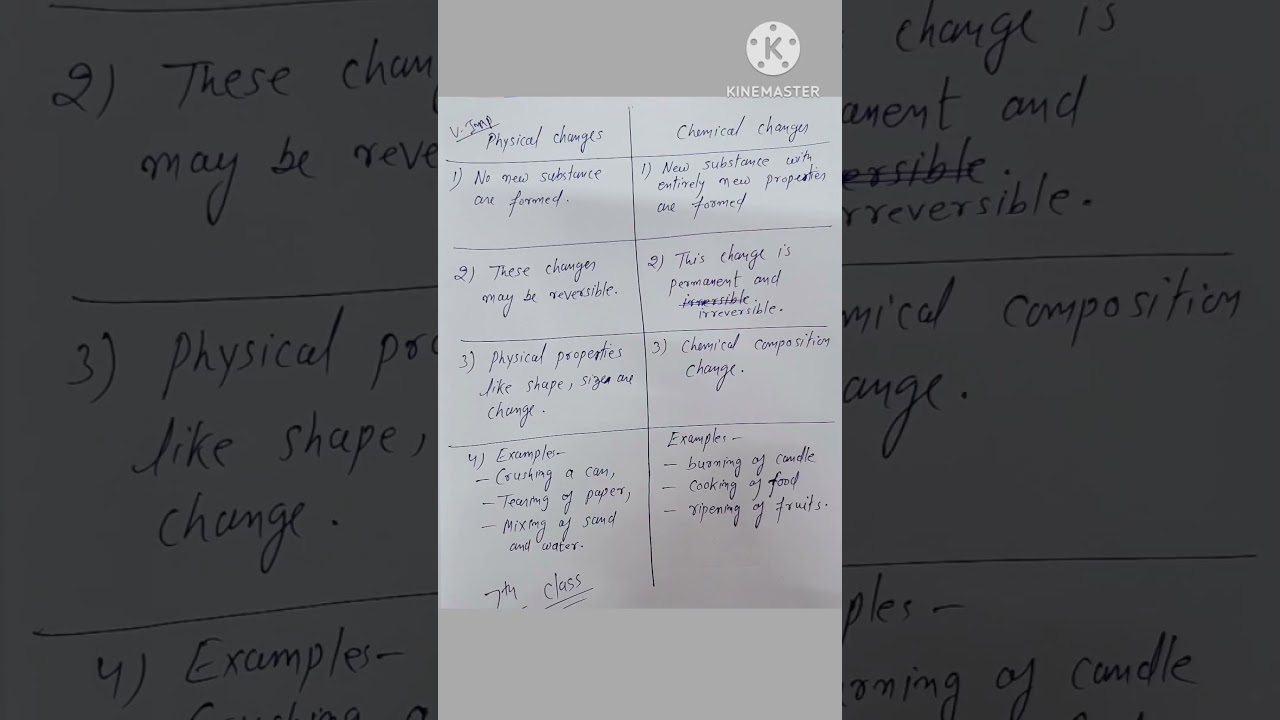 KINEMASTER
V. Imp
Physical changes
Chemical changes
1) No new substance
are formed.
1) New substance with
entirely new properties
are formed
2) These changes
may be reversible.
2) This change is
permanent and
irreversible.
3) Physical properties
like shape, sizes are
change.
3) Chemical composition
change.
4) Examples-
- Crushing a can,
- Tearing of paper,
- Mixing of sand
and water.
Examples-
- burning of candle
- cooking of food
- ripening of fruits.
7th class
2) These chan
may be reve
3) Physical pro
like shape,
change.
4) Examples-
change is
anent and
ersible.
rreversible.
mical composition
ange.
ples-
rning of candle